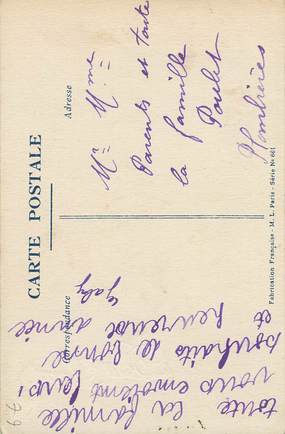 CARTE POSTALE
Correspondance
Adresse
toute la famille
vous envoient leurs
souhaits de bonne
et heureuse année
Gaby
Mr & Mme
Parents et toute
la famille
Poulet
Plombières
Fabrication Française - M. L. Paris - Série No 661
79